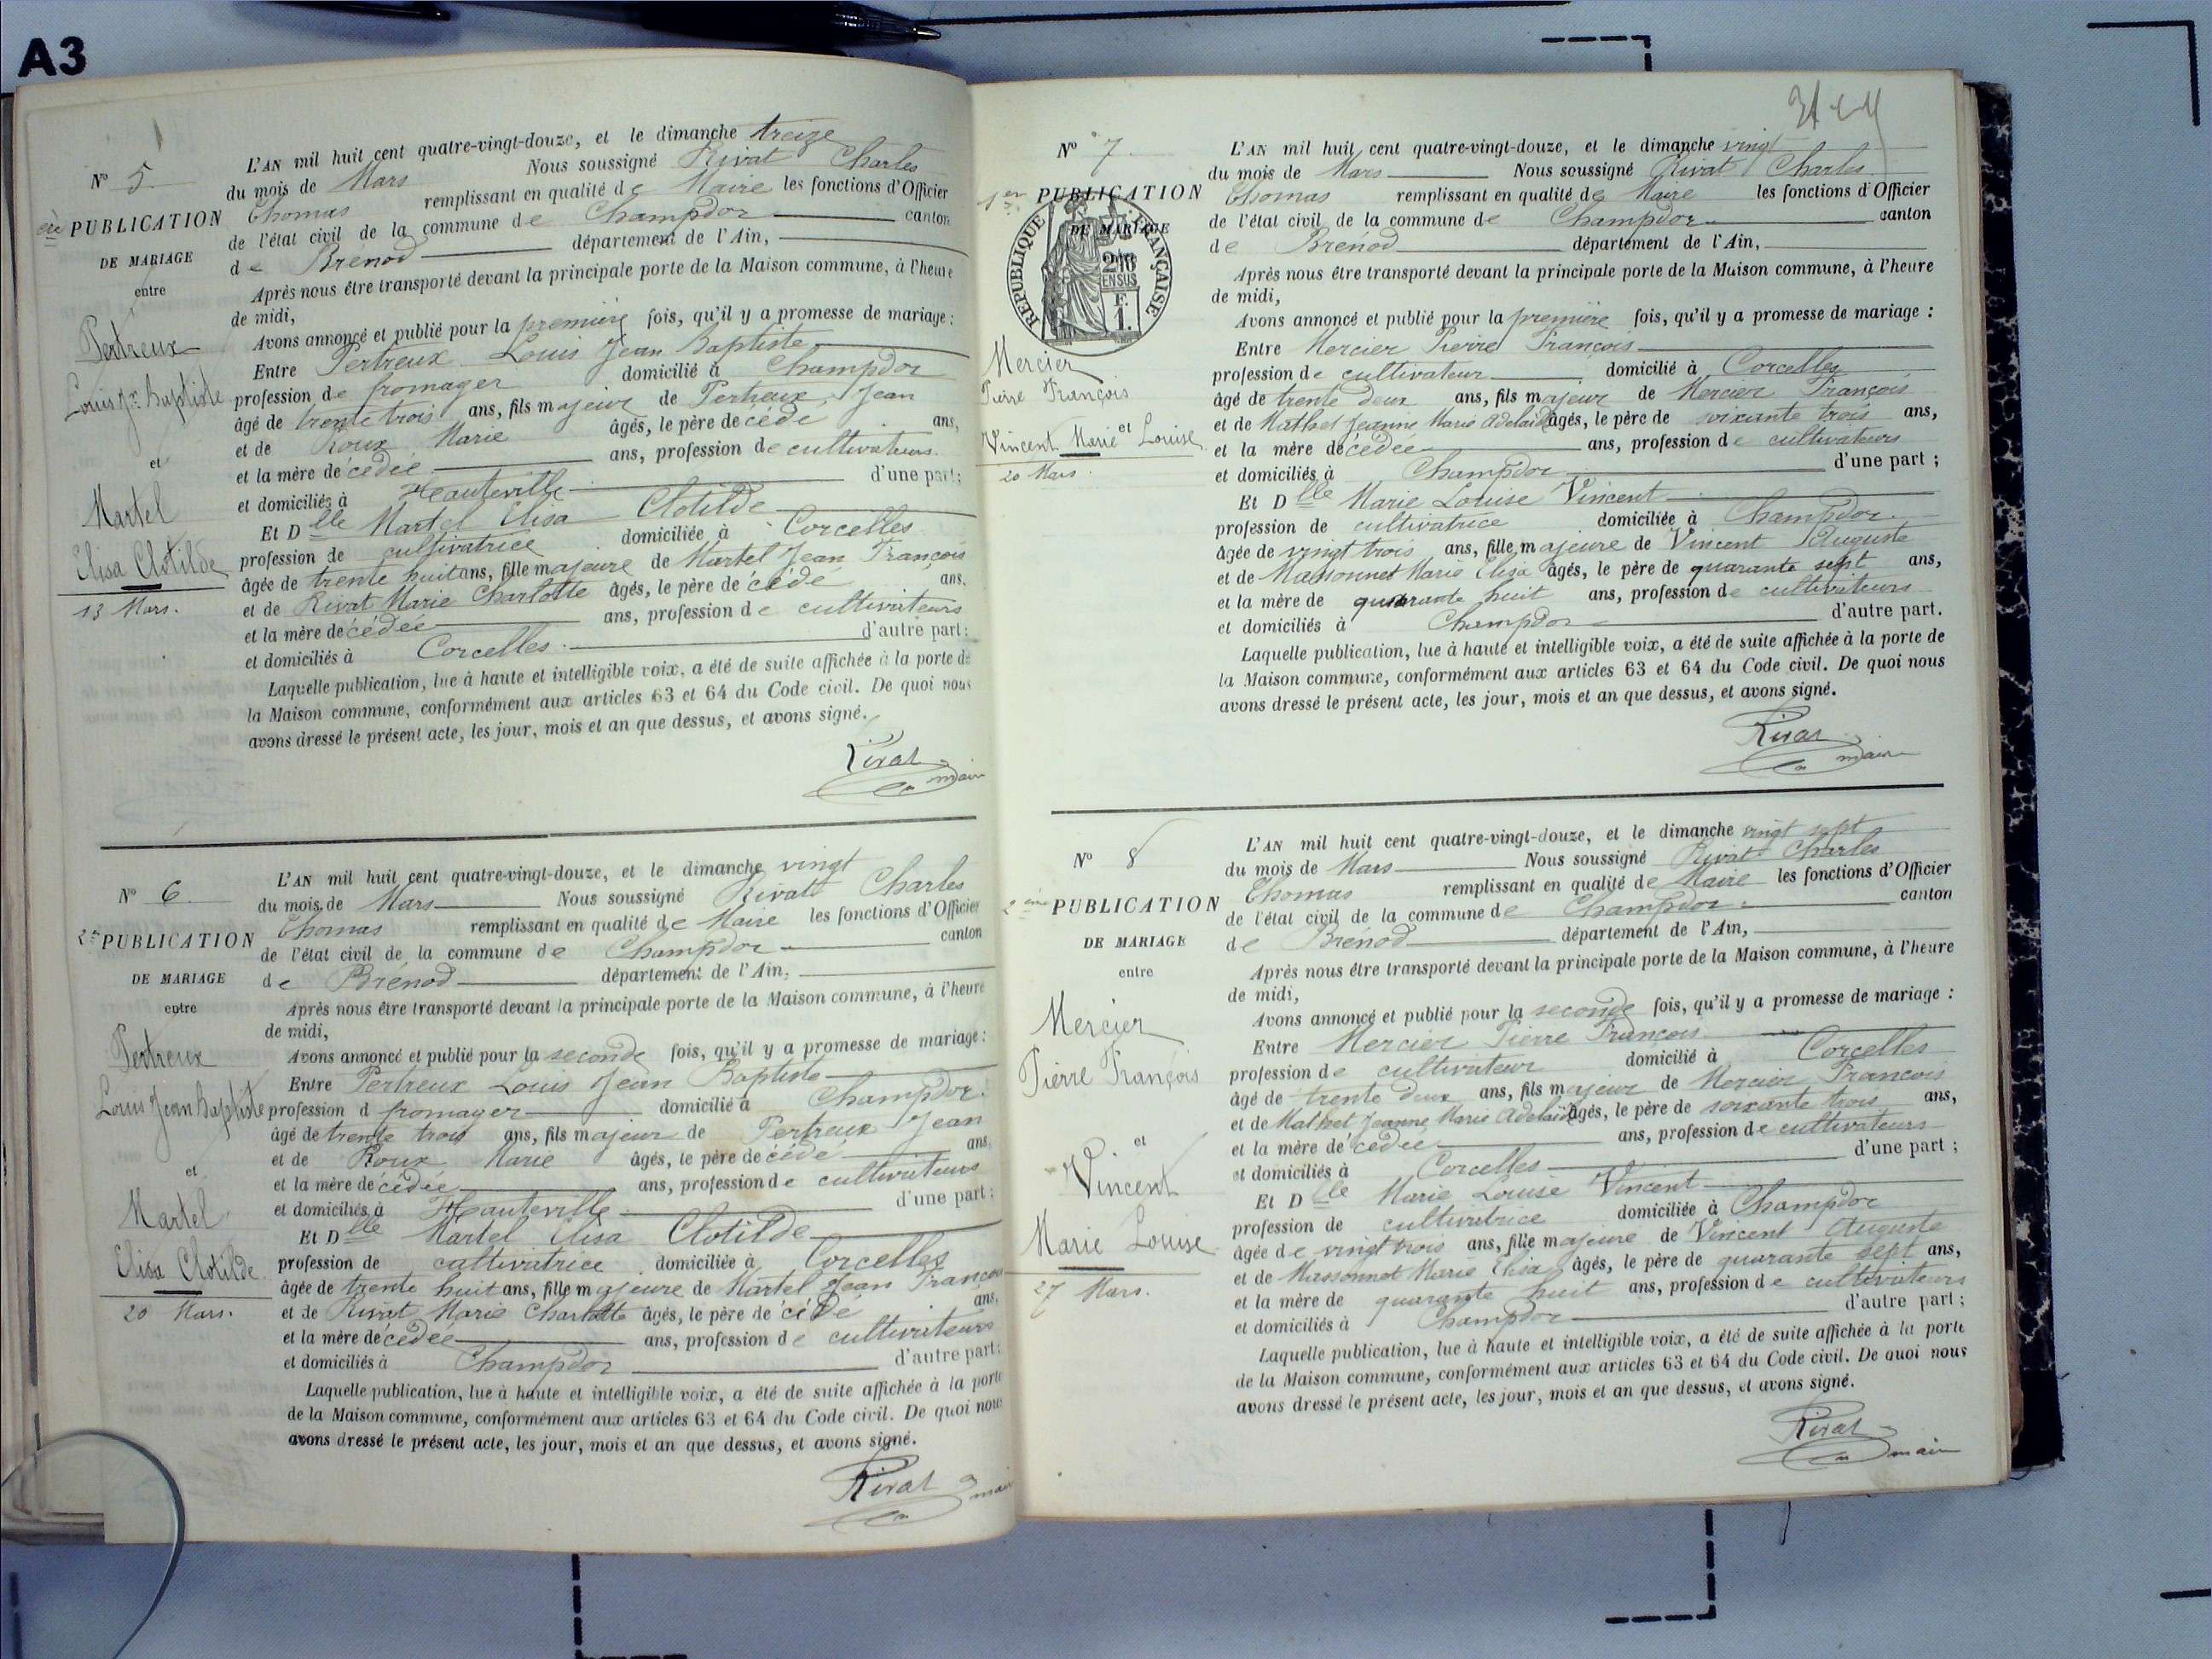 A3
N° 5
ère PUBLICATION
DE MARIAGE
entre
Pertreux
Louis Jn Baptiste
et
Martel
Elisa Clotilde
13 Mars.
L'AN mil huit cent quatre-vingt-douze, et le dimanche treize
du mois de Mars Nous soussigné Rivat Charles
Thomas remplissant en qualité de Maire les fonctions d'Officier
de l'état civil de la commune de Champdor canton
de Brénod département de l'Ain,
Après nous être transporté devant la principale porte de la Maison commune, à l'heure
de midi,
Avons annoncé et publié pour la première fois, qu'il y a promesse de mariage :
Entre Pertreux Louis Jean Baptiste
profession de fromager domicilié à Champdor
âgé de trente trois ans, fils majeur de Pertreux Jean
et de Roux Marie âgés, le père de cédé ans,
et la mère décédée ans, profession de cultivateurs
et domiciliés à Hauteville d'une part ;
Et Dlle Martel Elisa Clotilde
profession de cultivatrice domiciliée à Corcelles
âgée de trente huit ans, fille majeure de Martel Jean François
et de Rivat Marie Charlotte âgés, le père de cédé ans,
et la mère décédée ans, profession de cultivateurs
et domiciliés à Corcelles d'autre part ;
Laquelle publication, lue à haute et intelligible voix, a été de suite affichée à la porte de
la Maison commune, conformément aux articles 63 et 64 du Code civil. De quoi nous
avons dressé le présent acte, les jour, mois et an que dessus, et avons signé.
Rivat
maire
N° 6
2e PUBLICATION
DE MARIAGE
entre
Pertreux
Louis Jean Baptiste
et
Martel
Elisa Clotilde
20 Mars.
L'AN mil huit cent quatre-vingt-douze, et le dimanche vingt
du mois de Mars Nous soussigné Rivat Charles
Thomas remplissant en qualité de Maire les fonctions d'Officier
de l'état civil de la commune de Champdor canton
de Brénod département de l'Ain,
Après nous être transporté devant la principale porte de la Maison commune, à l'heure
de midi,
Avons annoncé et publié pour la seconde fois, qu'il y a promesse de mariage :
Entre Pertreux Louis Jean Baptiste
profession d fromager domicilié à Champdor
âgé de trente trois ans, fils majeur de Pertreux Jean
et de Roux Marie âgés, le père de cédé ans,
et la mère décédée ans, profession de cultivateurs
et domiciliés à Hauteville d'une part ;
Et Dlle Martel Elisa Clotilde
profession de cultivatrice domiciliée à Corcelles
âgée de trente huit ans, fille majeure de Martel Jean François
et de Rivat Marie Charlotte âgés, le père de cédé ans,
et la mère décédée ans, profession de cultivateurs
et domiciliés à Champdor d'autre part ;
Laquelle publication, lue à haute et intelligible voix, a été de suite affichée à la porte
de la Maison commune, conformément aux articles 63 et 64 du Code civil. De quoi nous
avons dressé le présent acte, les jour, mois et an que dessus, et avons signé.
Rivat
maire
N° 7
1er PUBLICATION
DE MARIAGE
REPUBLIQUE FRANÇAISE
2/10
EN SUS
F.
1.
Mercier
Pierre François
et
Vincent Marie Louise
20 Mars
L'AN mil huit cent quatre-vingt-douze, et le dimanche vingt
du mois de Mars Nous soussigné Rivat Charles
Thomas remplissant en qualité de Maire les fonctions d'Officier
de l'état civil de la commune de Champdor canton
de Brénod département de l'Ain,
Après nous être transporté devant la principale porte de la Maison commune, à l'heure
de midi,
Avons annoncé et publié pour la première fois, qu'il y a promesse de mariage :
Entre Mercier Pierre François
profession de cultivateur domicilié à Corcelles
âgé de trente deux ans, fils majeur de Mercier François
et de Jeanne Marie Adelaïde âgés, le père de soixante trois ans,
et la mère décédée ans, profession de cultivateurs
et domiciliés à Champdor d'une part ;
Et Dlle Marie Louise Vincent
profession de cultivatrice domiciliée à Champdor
âgée de vingt trois ans, fille majeure de Vincent Auguste
et de Massonnet Marie Elisa âgés, le père de quarante sept ans,
et la mère de quarante huit ans, profession de cultivateurs
et domiciliés à Champdor d'autre part.
Laquelle publication, lue à haute et intelligible voix, a été de suite affichée à la porte de
la Maison commune, conformément aux articles 63 et 64 du Code civil. De quoi nous
avons dressé le présent acte, les jour, mois et an que dessus, et avons signé.
Rivat
maire
N° 8
2ème PUBLICATION
DE MARIAGE
entre
Mercier
Pierre François
et
Vincent
Marie Louise
27 Mars.
L'AN mil huit cent quatre-vingt-douze, et le dimanche vingt sept
du mois de Mars Nous soussigné Rivat Charles
Thomas remplissant en qualité de Maire les fonctions d'Officier
de l'état civil de la commune de Champdor canton
de Brénod département de l'Ain,
Après nous être transporté devant la principale porte de la Maison commune, à l'heure
de midi,
Avons annoncé et publié pour la seconde fois, qu'il y a promesse de mariage :
Entre Mercier Pierre François
profession de cultivateur domicilié à Corcelles
âgé de trente deux ans, fils majeur de Mercier François
et de Jeanne Marie Adelaïde âgés, le père de soixante trois ans,
et la mère décédée ans, profession de cultivateurs
et domiciliés à Corcelles d'une part ;
Et Dlle Marie Louise Vincent
profession de cultivatrice domiciliée à Champdor
âgée de vingt trois ans, fille majeure de Vincent Auguste
et de Massonnet Marie Elisa âgés, le père de quarante sept ans,
et la mère de quarante huit ans, profession de cultivateurs
et domiciliés à Champdor d'autre part ;
Laquelle publication, lue à haute et intelligible voix, a été de suite affichée à la porte
de la Maison commune, conformément aux articles 63 et 64 du Code civil. De quoi nous
avons dressé le présent acte, les jour, mois et an que dessus, et avons signé.
Rivat
maire